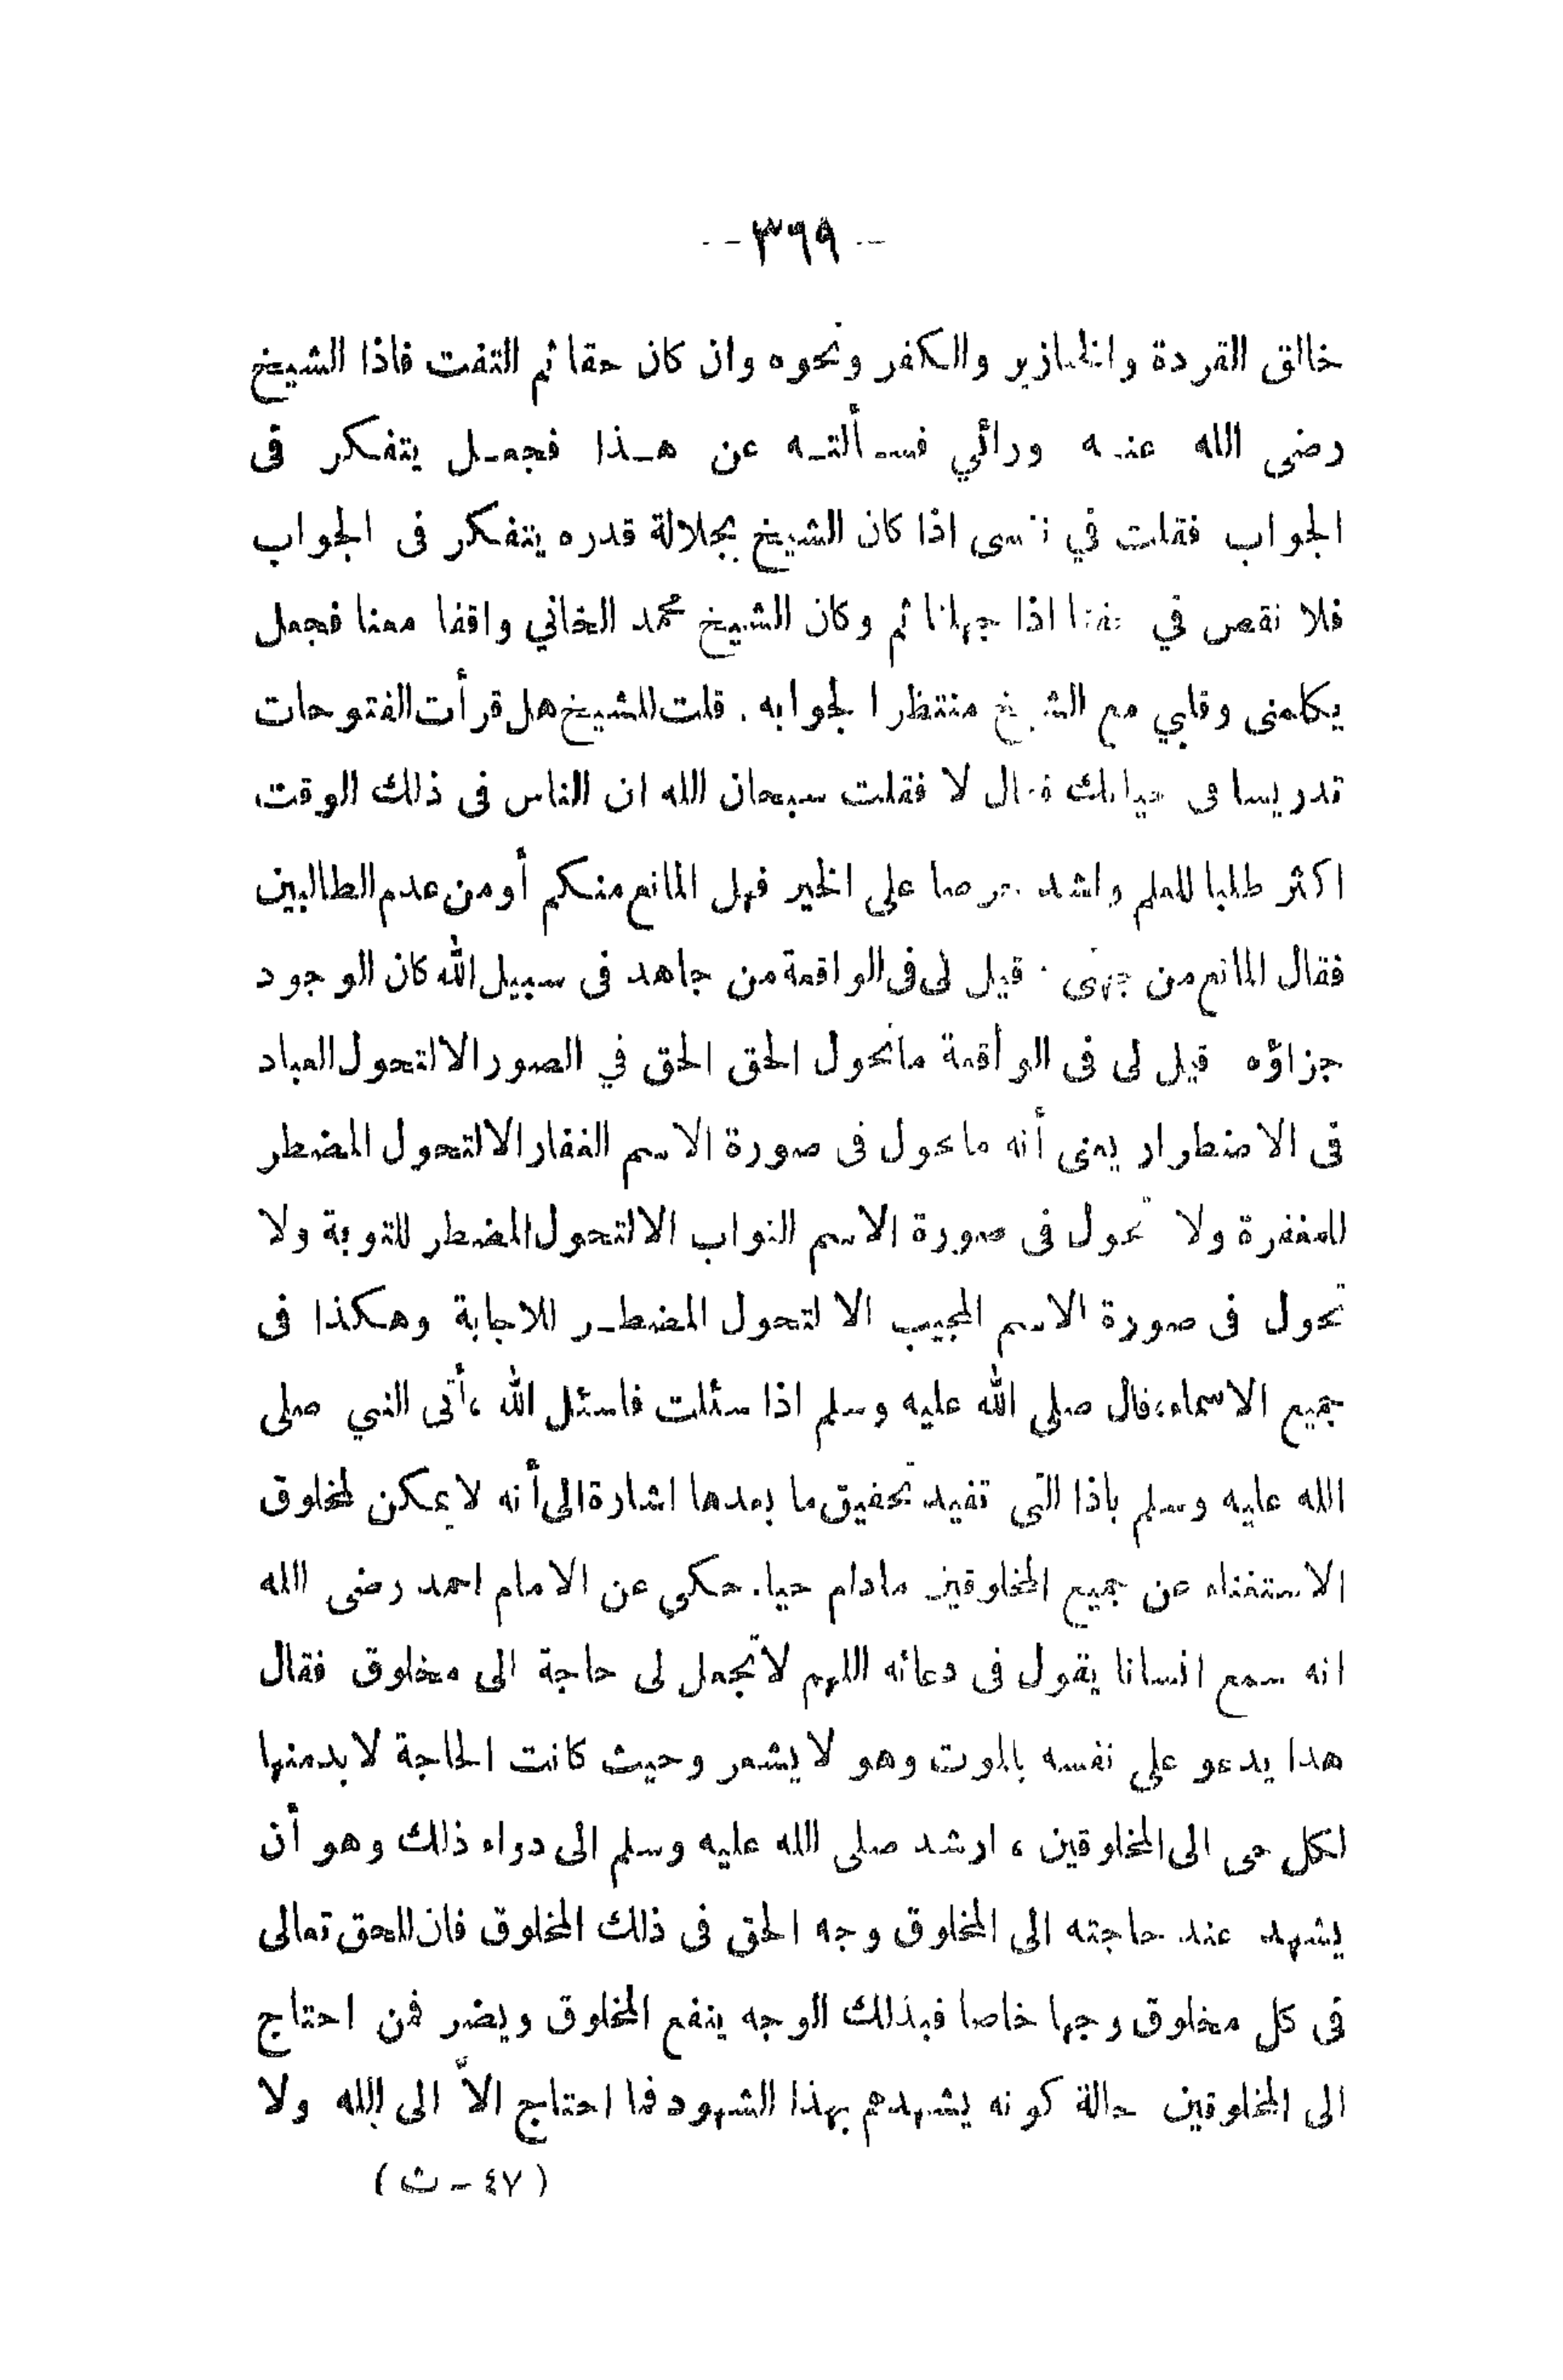 --٣٦٩--
خالق القردة والخنازير والكفر ونحوه وان كان حقا ثم التفت فاذا الشيخ
رضى الله عنه ورائي فسألته عن هذا فجعل يتفكر فى
الجواب فقلت في نفسى اذا كان الشيخ بجلالة قدره يتفكر فى الجواب
فلا نقص في حقنا اذا جهلنا ثم وكان الشيخ محمد الخاني واقفا معنا فجعل
يكلمنى وقلبي مع الشيخ منتظرا لجوابه . قلت للشيخ هل قرأت الفتوحات
تدريسا فى حياتك فقال لا فقلت سبحان الله ان الناس فى ذلك الوقت
اكثر طلبا للعلم واشد حرصا على الخير فهل المانع منكم أو من عدم الطالبين
فقال المانع من جهتى . قيل لى فى الواقعة من جاهد فى سبيل الله كان الوجود
جزاؤه قيل لى فى الواقعة ماتحول الحق الحق في الصور الا لتحول العباد
فى الاضطرار يعنى أنه ماتحول فى صورة الاسم الغفار الا لتحول المضطر
للمغفرة ولا تحول فى صورة الاسم التواب الا لتحول المضطر للتوبة ولا
تحول فى صورة الاسم المجيب الا لتحول المضطر للاجابة وهكذا فى
جميع الاسماء، قال صلى الله عليه وسلم اذا سئلت فاسئل الله ، أتى النبي صلى
الله عليه وسلم باذا التى تفيد تحقيق ما بعدها اشارة الى أنه لا يمكن لمخلوق
الاستغناء عن جميع المخلوقين مادام حيا. حكي عن الامام احمد رضى الله
انه سمع انسانا يقول فى دعائه اللهم لاتجعل لى حاجة الى مخلوق فقال
هدا يدعو على نفسه بالموت وهو لا يشعر وحيث كانت الحاجة لابدمنها
لكل حى الى المخلوقين ، ارشد صلى الله عليه وسلم الى دواء ذلك وهو أن
يشهد عند حاجته الى المخلوق وجه الحق فى ذلك المخلوق فان للحق تعالى
فى كل مخلوق وجها خاصا فبذلك الوجه ينفع المخلوق ويضر فمن احتاج
الى المخلوقين حالة كونه يشهدهم بهذا الشهود فما احتاج الاّ الى الله ولا
(٤٧ - ث)